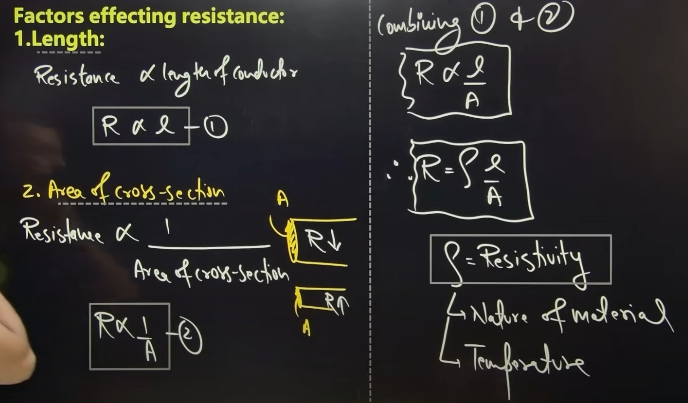 Factors effecting resistance:
1.Length:
Resistance ∝ length of conductor
R ∝ l - ①
2. Area of cross-section
Resistance ∝ 1
Area of cross-section
R ∝ 1/A - ②
A
R↓
R↑
A
Combining ① & ②
R ∝ l/A
∴ R = ρ l/A
ρ = Resistivity
↳ Nature of material
↳ Temperature